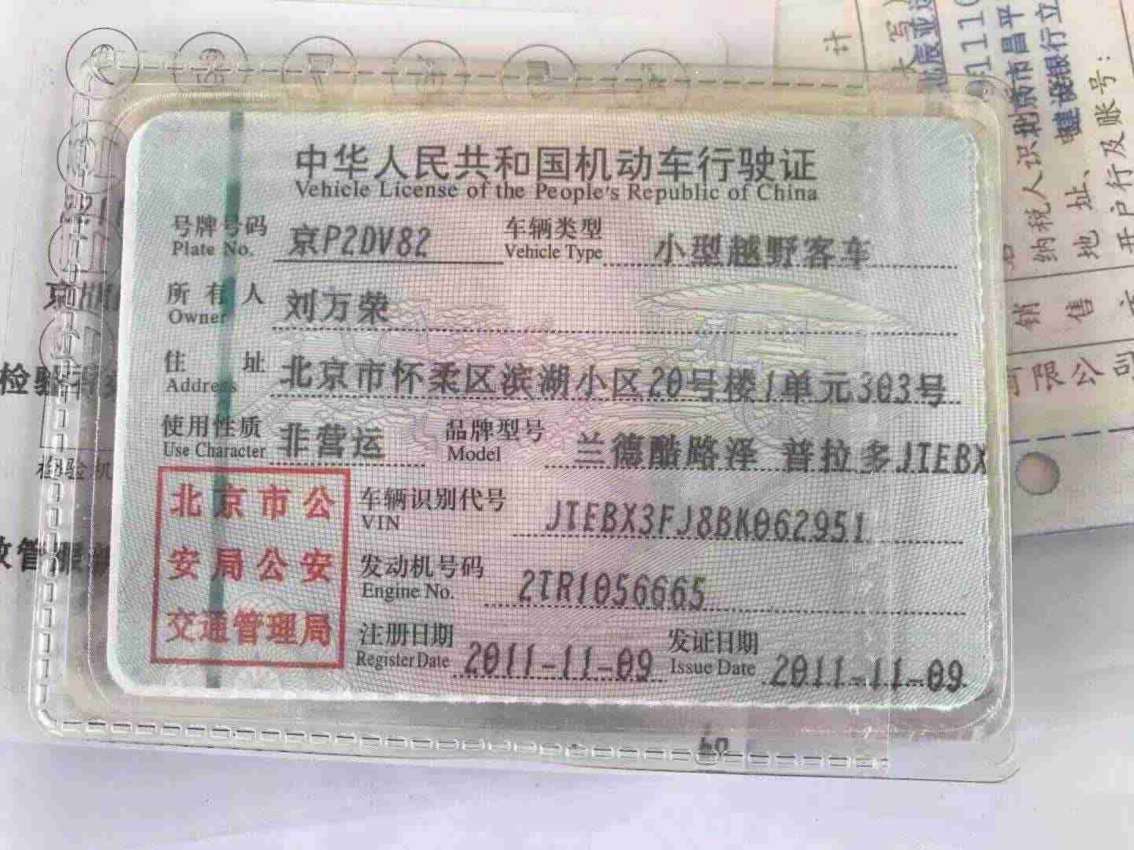 中华人民共和国机动车行驶证
Vehicle License of the People's Republic of China
号牌号码 京P2DV82 车辆类型 小型越野客车
Plate No. Vehicle Type
所有人 刘万荣
Owner
住址 北京市怀柔区滨湖小区20号楼1单元303号
Address
使用性质 非营运 品牌型号 兰德酷路泽 普拉多JTEBX
Use Character Model
北京市公
安局公安
交通管理局
车辆识别代号 JTEBX3FJ8BK062951
VIN
发动机号码 2TR1056665
Engine No.
注册日期 2011-11-09 发证日期 2011-11-09
Register Date Issue Date
计
纳税人识
地址、
开户行及账号:
北京市昌平
建设银行立
销售
有限公司
检验